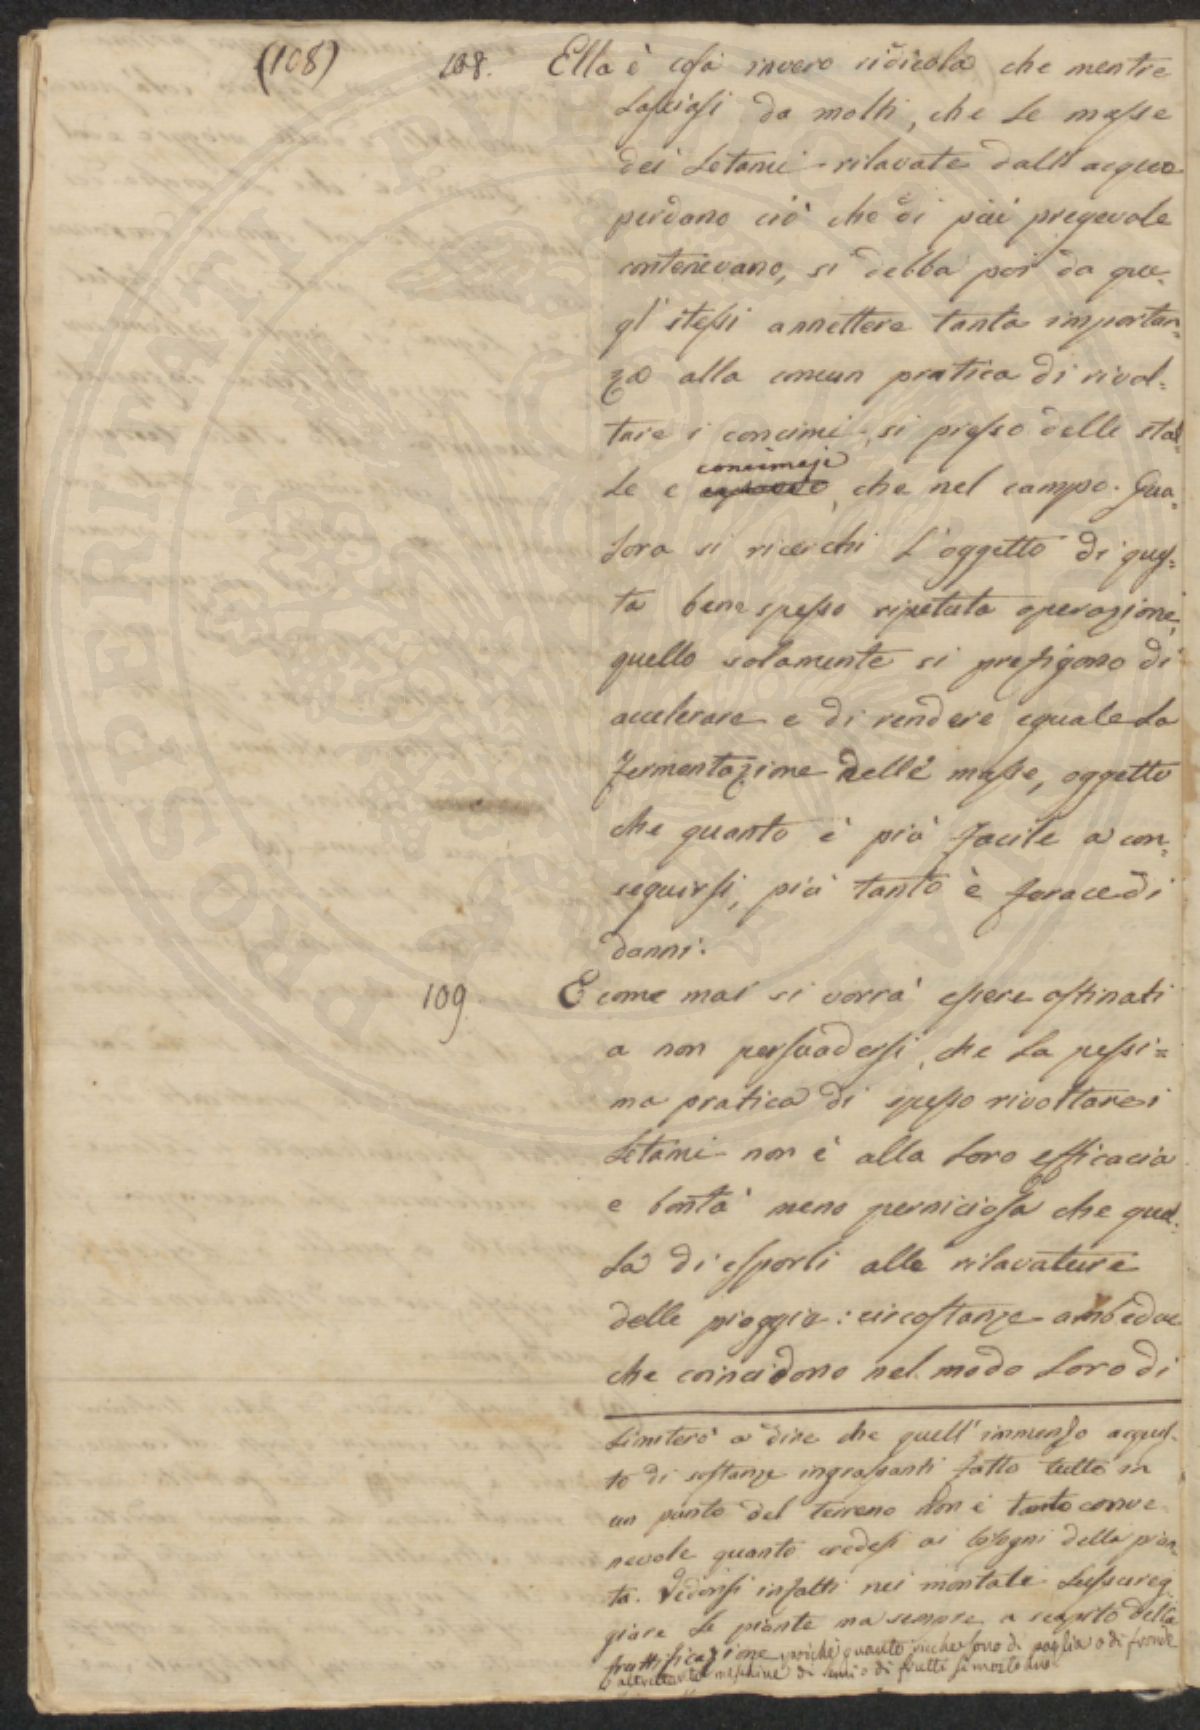 (108)
108. Ella è cosa invero ridicola che mentre
lasciasi da molti, che le masse
dei letami rilavate dall'acqua
perdano ciò che di più pregevole
contenevano, si debba poi da que-
gl'stessi annettere tanta importan=
za alla comun pratica di rivol=
tare i concimi, si presso delle stal=
concimaje
le e , che nel campo. Qua=
lora si ricerchi l'oggetto di ques=
ta bene spesso ripetuta operazione,
quello solamente si prefigono di
accelerare e di rendere eguale la
fermentazione delle masse, oggetto
che quanto è più facile a con=
seguirsi, più tanto è ferace di
danni.
109. E come mai si vorrà essere ostinati
a non persuadersi, che la pessi=
ma pratica di spesso rivoltare i
letami non è alla loro efficacia
e bontà meno perniciosa che quel=
la di esporli alle rilavature
delle pioggie: circostanze ambedue
che coincidono nel modo loro di
limiterò a dire che quell'immenso acquis-
to di sostanze ingrassanti fatto tutto in
un punto del terreno non è tanto conve
nevole quanto credesi ai bisogni della pian
ta. Vedonsi infatti nei montate lussureg
giare le piante ma sempre a scapito della
fruttificazione, poichè quanto ricche sono di paglia o di fronde
altrettanto meschine di semi o di frutti si mostrano.
PROSPERITATI PVBLICAE